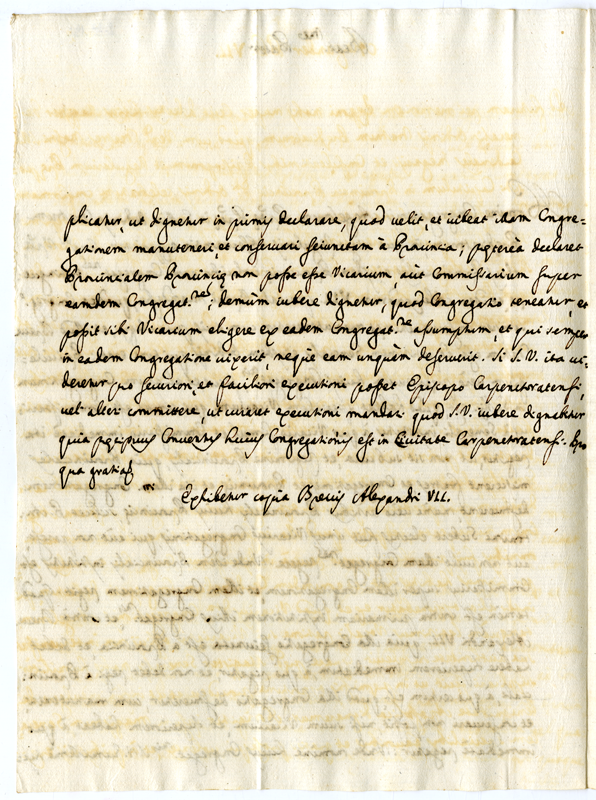 plicatur, ut dignetur in primis declarare, quod velit, et iubeat itam Congre-
gationem manuteneri, et conservari seiunctam à Provincia; pręterèa declaret
Provincialem Provincię non posse esse Vicarium, aut Commissarium super
eamdem Congregat.nem; demùm iubere dignetur, quod Congregatio teneatur, et
possit sibi Vicarium eligere ex eadem Congregat.ne assumptum, et qui semper
in eadem Congregatione vixerit, neque eam unquàm deseruerit. Si S. V. ita vi-
deretur pro securiori, et faciliori executioni posset Episcopo Carpenctoratensi,
vel alteri committere, ut curaret executioni mandari quod S.V. iubere dignabitur
quia pręcipuus Conventus huius Congregationis est in Civitate Carpenctoratensi. Pro
qua gratia
Exhibetur copia Brevis Alexandri VII.